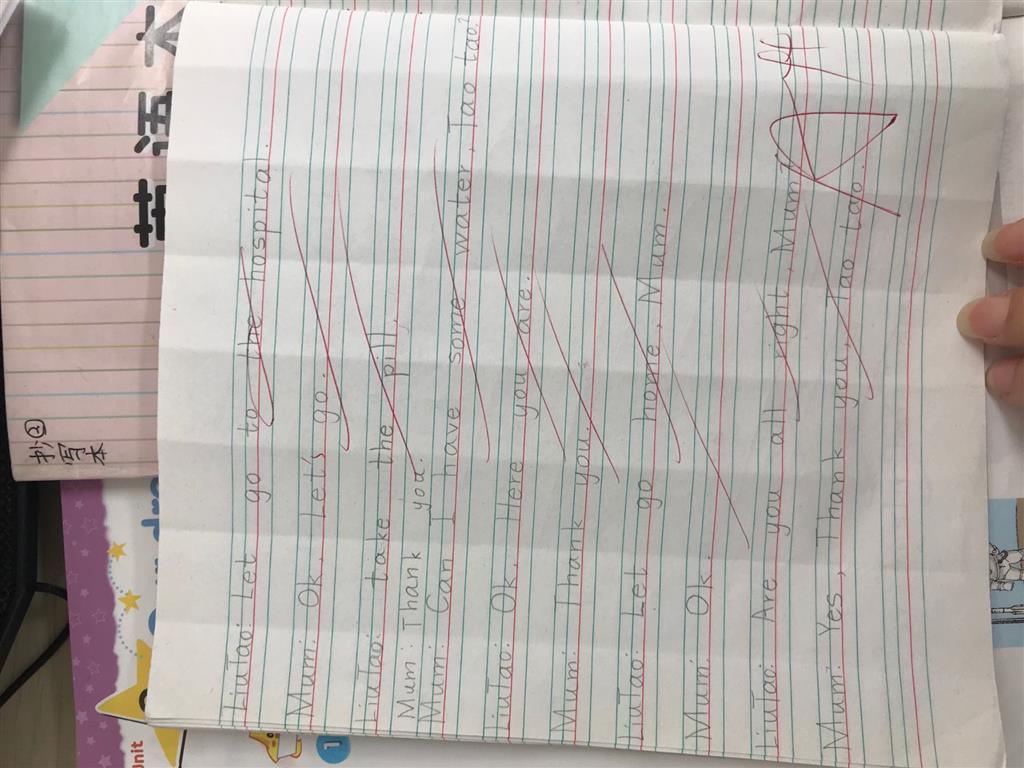 LiuTao: Let go to the hospital.
Mum: Ok. Let's go.
LiuTao: take the pill.
Mum: Thank you.
Mum: Can I have some water, Tao tao?
LiuTao: Ok. Here you are.
Mum: Thank you.
LiuTao: Let go home, Mum.
Mum: Ok.
LiuTao: Are you all right, Mum?
Mum: Yes, Thank you, Tao tao.
书写本
②
Unit
1